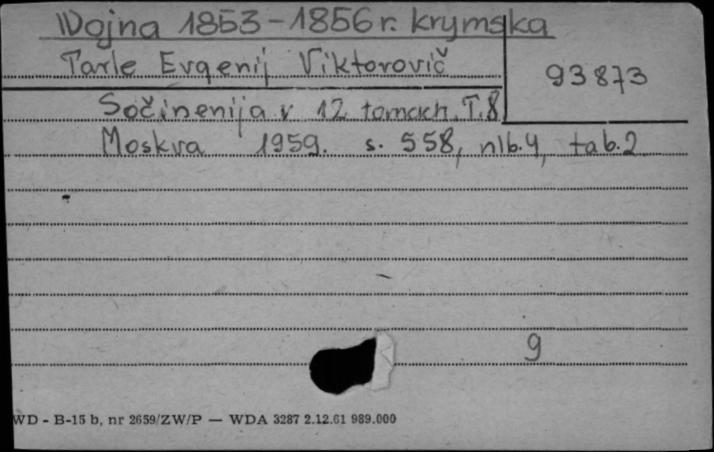 Wojna 1853-1856 r. krymska
Tarle Evgenij Viktorovič
93873
Sočinenija v 12 tomach. T.8
Moskva 1959. s. 558, nlb.4, tab.2
9
WD - B-15 b, nr 2659/ZW/P — WDA 3287 2.12.61 989.000